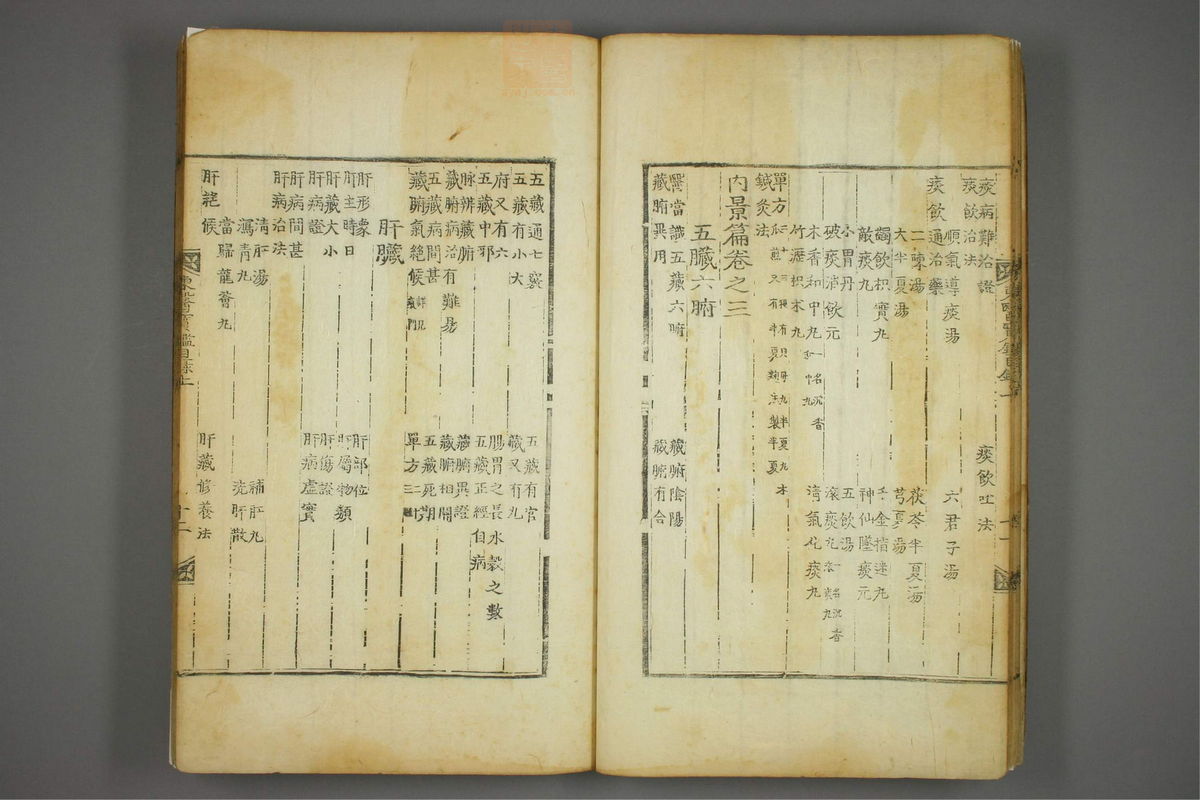 痰病難治證
痰飲治法　痰飲吐法
順氣導痰湯　六君子湯
痰飲通治藥
二陳湯　茯苓半夏湯
大半夏湯　芎夏湯
蠲飲枳實丸　千金指迷丸
敵痰丸　神仙墜痰元
小胃丹　五飲湯
破痰消飲元　滾痰丸 一名沉香滾痰丸
木香和中丸 一名沉香和中丸　淸氣化痰丸
竹瀝枳朮丸
單方
鍼灸法
內景篇卷之三
五臟六腑
醫當識五藏六腑　藏腑陰陽
藏腑異用　藏腑有合
五藏通七竅　五藏有官
五藏有小大　藏又有九
府又有六　腸胃之長水穀之數
五藏中邪　五藏正經自病
脉辨藏腑　藏腑異證
藏腑病治有難易　藏腑相關
五藏病間甚　五藏死期
藏腑氣絕候　單方
肝臟
肝形象　肝部位
肝主時日　肝屬物類
肝藏大小　肝傷證
肝病證　肝病虛實
肝病間甚
肝病治法
淸肝湯　補肝丸
瀉靑丸　洗肝散
當歸龍薈丸
肝絕候　肝藏修養法
東醫寶鑑目錄上　十二